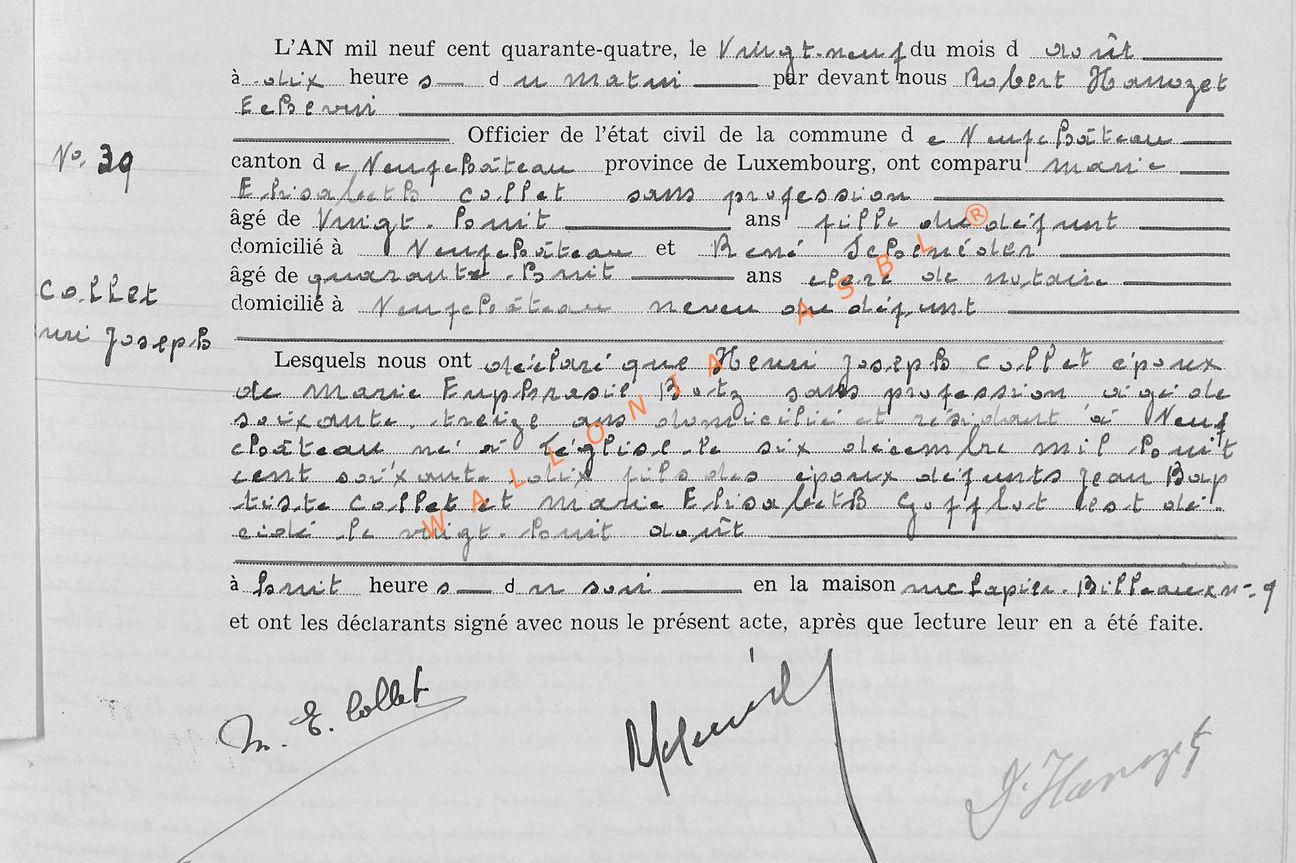 L'AN mil neuf cent quarante-quatre, le Vingt-neuf du mois d août
à dix heure s d u matin par devant nous Robert Hanozet
Echevin
Officier de l'état civil de la commune d e Neufchâteau
No. 39
canton d e Neufchâteau province de Luxembourg, ont comparu Marie
Elisabeth Collet sans profession
âgé de Vingt-huit ans fille du défunt
domicilié à Neufchâteau et René
âgé de quarante-huit ans clerc de notaire
domicilié à Neufchâteau neveu du défunt
Collet
nri Joseph
Lesquels nous ont déclaré que Henri Joseph Collet époux
de Marie Euphrasie Botz sans profession âgé de
soixante-treize ans domicilié et résidant à Neuf
château né à Léglise le six décembre mil huit
cent soixante dix fils des époux défunts Jean Bap
tiste Collet et Marie Elisabeth Gofflot est dé-
cédé le vingt-huit août
à huit heure s d u soir en la maison rue Lapier-Billeaux n° 9
et ont les déclarants signé avec nous le présent acte, après que lecture leur en a été faite.
M. E. Collet
Hanozet
WALLONIA ASBL ®